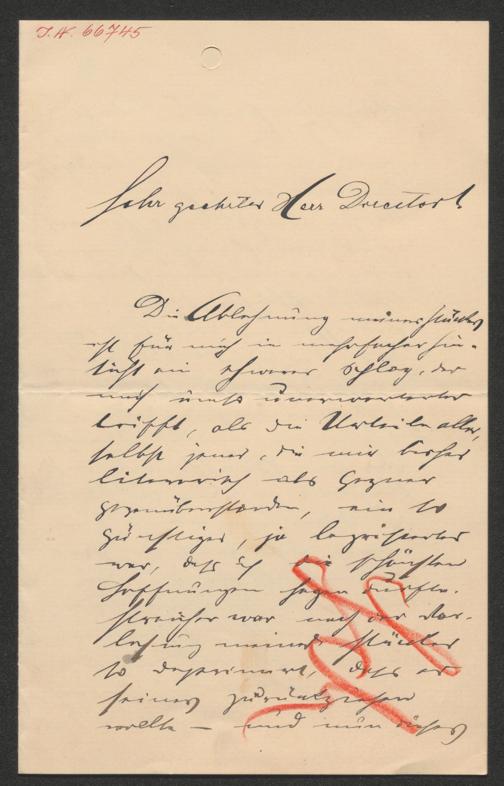 J.N. 66745
Sehr geehrter Herr Director!
Die Ablehnung meines Stückes
ist für mich in mehrfacher Hin-
sicht ein schwerer Schlag, der
mich umso unerwarteter
trifft, als die Urteile aller,
selbst jener, die mir bisher
literarisch als Gegner
gegenüberstanden, ein so
günstiges, ja begeistertes
war, dass ich die schönsten
Hoffnungen hegen durfte.
Streicher war nach der Vor-
lesung meines Stückes
so deprimirt, dass er
seines zurückziehen
wollte — und nun dieses